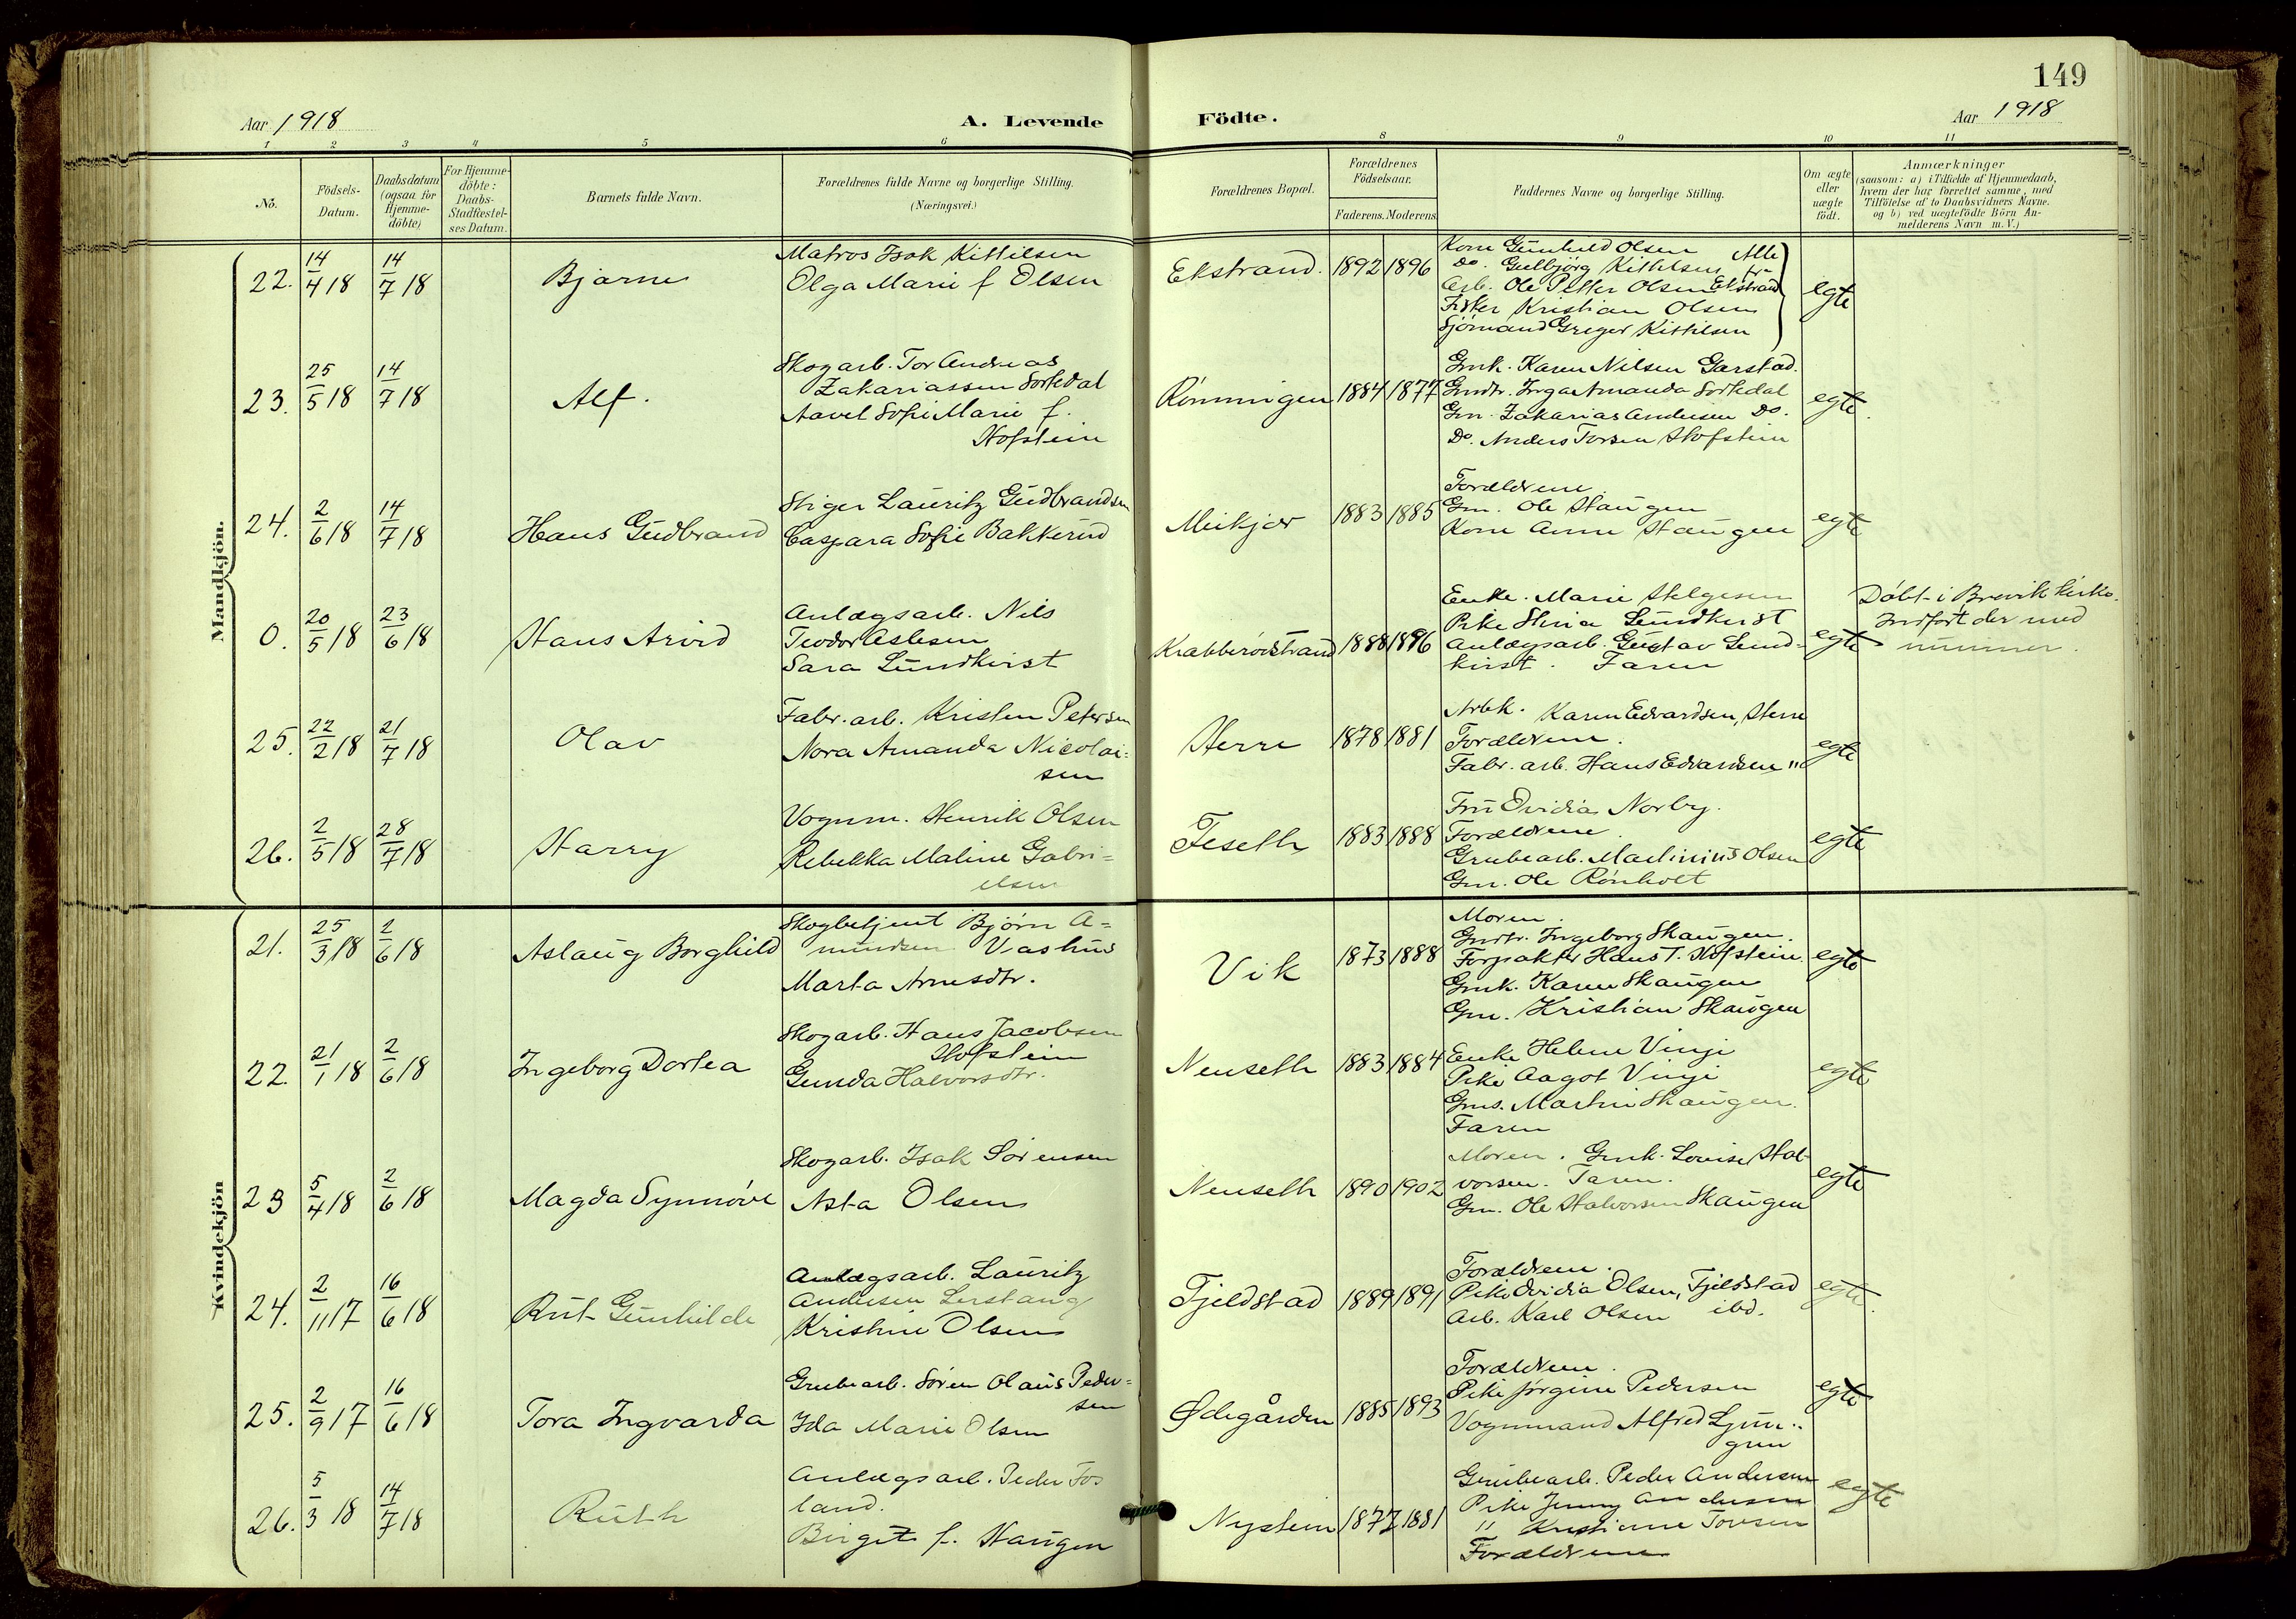 149
Aar 1918
A. Levende
Födte.
Aar 1918
1 2 3 4 5 6 8 9 10 11
No.
Födsels-
Datum.
Daabsdatum
(ogsaa for
Hjemme-
döbte)
For Hjemme-
döbte:
Daabs-
Stadfæstel-
ses Datum.
Barnets fulde Navn.
Forældrenes fulde Navne og borgerlige Stilling.
(Næringsvei.)
Forældrenes Bopæl.
Forældrenes
Födselsaar.
Faderens. Moderens
Faddernes Navne og borgerlige Stilling.
Om ægte
eller
uægte
födt.
Anmærkninger
(saasom: a) i Tilfælde af Hjemmedaab,
hvem der har forrettet samme, med
Tilföielse af to Daabsvidners Navne.
og b) ved uægtefödte Börn An-
melderens Navn m.V.)
Mandkjön.
22. 14/4 18 14/7 18 Bjarne
Matros Isak Kittilsen
Olga Marie f Olsen
Ekstrand. 1892 1896
Kone Gunhild Olsen Alle
Do. Gulbjörg Kittilsen fr
Arb. Ole Petter Olsen Ekstrand
Fisker Kristian Olsen
Sjömand Greger Kittilsen
egte
23. 25/5 18 14/7 18 Alf.
Skogarb. Tor Andreas
Zakariassen Sortedal
Aavel Sofie Marie f.
Hofstein
Rønningen 1884 1877
Gmk. Karen Nilsen Garstad.
Gmdtr. Inga Amanda Sortedal
Gm. Zakarias Andersen Do.
Do. Anders Torsen Hofstein
egte
24. 2/6 18 14/7 18 Hans Gudbrand
Stiger Lauritz Gudbrandsen
Caspara Sofie Bakkerud
Meikjær 1883 1885
Forældrene
Gm. Ole Haugen
Kone Anne Haugen
egte
0. 20/5 18 23/6 18 Hans Arvid
Anlægsarb. Nils
Teodor Aslesen
Sara Lundkvist
Krabberødstrand 1888 1896
Enke. Marie Helgesen
Pike Stina Lundkvist
Anlægsarb. Gustav Lund-
kvist. Faren
egte
Döbt i Brevik kirke.
Indført der med
nummer.
25. 22/2 18 21/7 18 Olav
Fabr. arb. Kristen Petersen
Nora Amanda Nicolai-
sen
Herre 1878 1881
Arbk. Karen Edvardsen, Herre
Forældrene.
Fabr. arb. Hans Edvardsen "
egte
26. 2/5 18 28/7 18 Harry
Vognm. Henrik Olsen
Rebekka Maline Gabri-
elsen
Feseth 1883 1888
Fru Ovidia Norby.
Forældrene.
Grubearb. Martinius Olsen
Gm. Ole Rønholt
egte
Kvindekjön
21. 25/3 18 2/6 18 Aslaug Borghild
Skogbetjent Bjørn A-
mundsen Vashus
Marta Arnesdtr.
Vik 1873 1888
Moren.
Gmdtr. Ingeborg Skaugen.
Forpakter Hans T. Hofstein.
Gmk. Karen Skaugen
Gm. Kristian Skaugen
egte
22. 21/1 18 2/6 18 Ingeborg Dortea
Skogarb. Hans Jacobsen
Hofstein
Gunda Halvorsdtr.
Nenseth 1883 1884
Enke Helene Vinje
Pike Aagot Vinje
Gms. Martin Skaugen.
Faren
egte
23 5/4 18 2/6 18 Magda Synnöve
Skogarb. Isak Sörensen
Asta Olsen
Nenseth 1890 1902
Moren. Gmk. Louise Hal-
vorsen. Faren.
Gm. Ole Halvorsen Skaugen
egte
24. 2/11 17 16/6 18 Rut Gunhilde
Anlægsarb. Lauritz
Andersen Lerstang
Kristine Olsen
Fjeldstad 1889 1891
Forældrene.
Pike Ovidia Olsen, Fjeldstad
Arb. Karl Olsen ibd.
egte.
25. 2/9 17 16/6 18 Tora Ingvarda
Grubearb. Sören Olaus Peder-
sen
Ida Marie Olsen
Ødegården 1885 1893
Forældrene.
Pike Jørgine Pedersen
Vognmand Alfred Ljun-
gren
egte
26. 5/3 18 14/7 18 Ruth
Anlægsarb. Peder Fos
land.
Birgit f. Haugen
Nystein 1877 1881
Grubearb. Peder Andersen
Pike Jenny Andersen
" Kristiane Torsen
Forældrene
egte